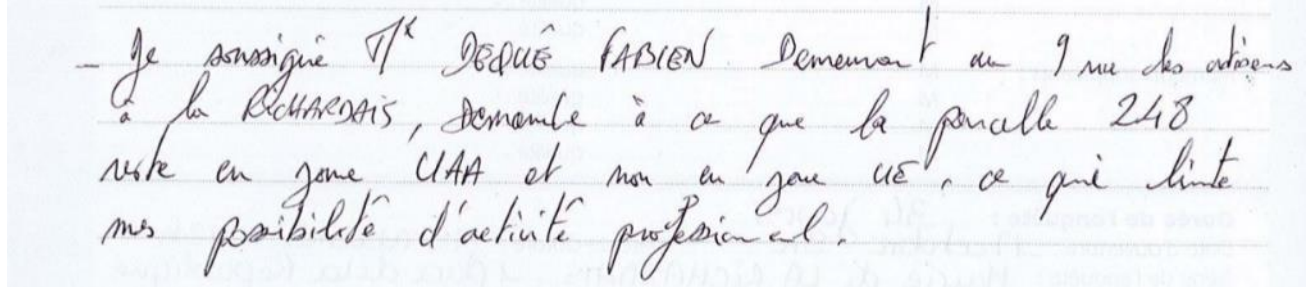 _ Je soussigné Mr DEQUÉ FABIEN Demeurant au 9 rue des artisans
à la RICHARDAIS, demande à ce que la parcelle 248
reste en zone UAA et non en zone UE, ce qui limite
mes possibilité d'activité professionnel.